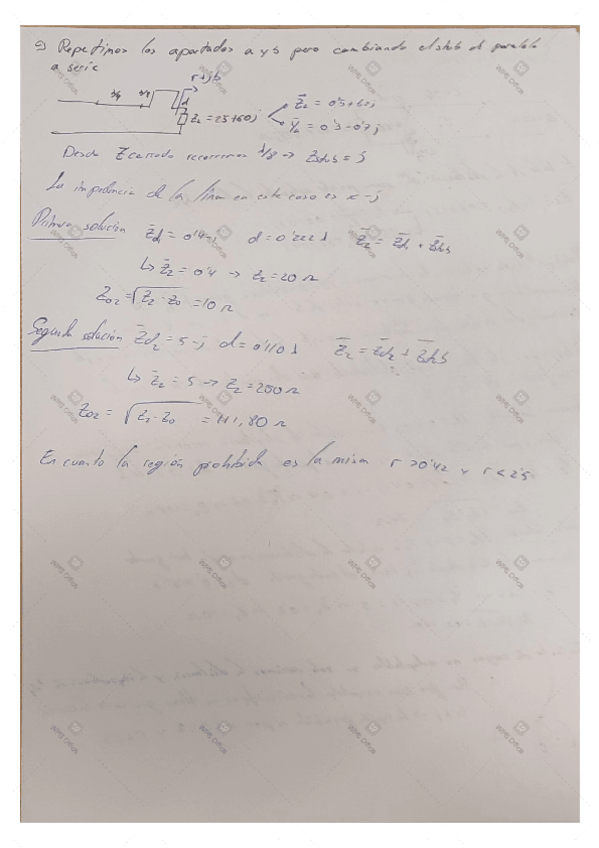 c) Repetimos los apartados a y b pero cambiando el stub de paralelo
a serie
r+jb
λ/4 λ/8 d
Z_L = 25+60j
z̄_L = 0'5+1'2j
ȳ_L = 0'3-0'7j
Desde Z cerrado recorremos λ/8 → Zstub = j
La impedancia de la línea en este caso es x-j
Primera solución z̄d₁ = 0'4-j d = 0'222 λ z̄₂ = z̄d₁ + z̄stub
↳ z̄₂ = 0'4 → z₂ = 20 Ω
Z₀₂ = √(Z₂·Z₀) = 10 Ω
Segunda solución z̄d₂ = 5-j d = 0'110 λ z̄₂ = z̄d₂ + z̄stub
↳ z̄₂ = 5 → Z₂ = 250 Ω
Z₀₂ = √(Z₂·Z₀) = 111,80 Ω
En cuanto la región prohibida es la misma r > 0'42 y r < 2'5
WPS Office